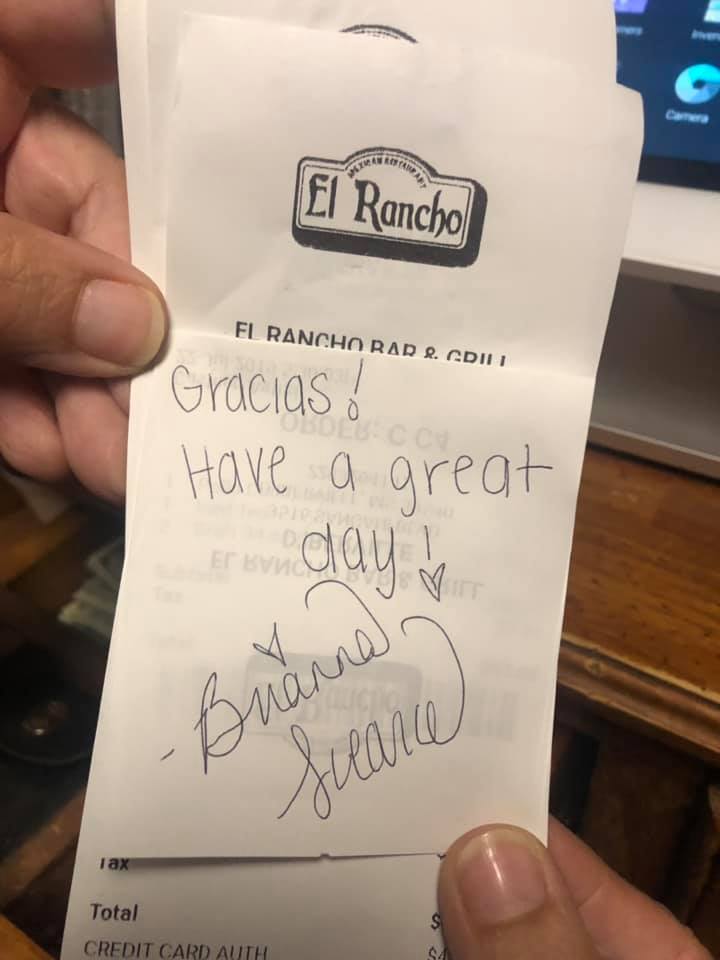 MEXICAN RESTAURANT
El Rancho
EL RANCHO BAR & GRILL
Gracias!
Have a great
day!
- Brianna
Tax
Total
$
CREDIT CARD AUTH
$4
Camera